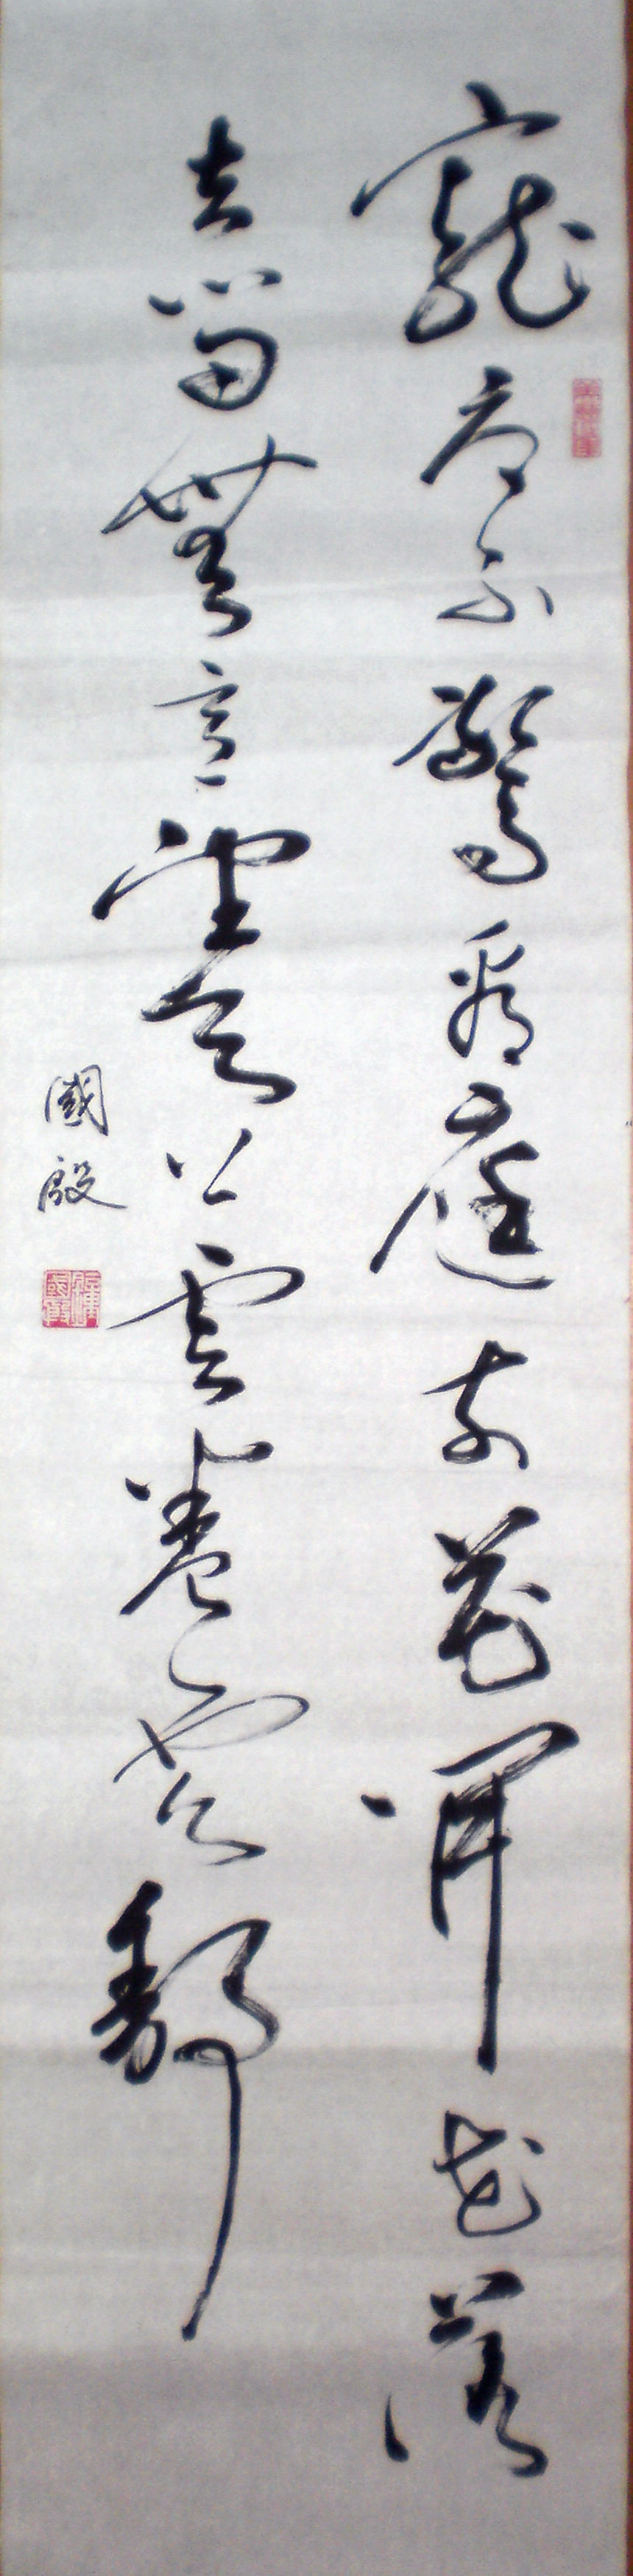 寵辱不驚看庭前花開花落
去留無意望天上雲卷雲舒
國殷